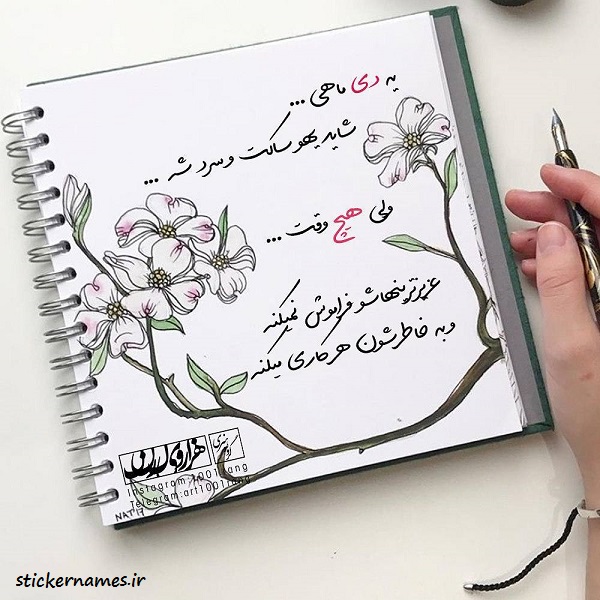 یه دی ماهی ...
شاید یهو ساکت و سرد شه ...
ولی هیچ وقت ...
عزیزترینهاشو فراموش نمیکنه
و به خاطرشون هر کاری میکنه
هزار و یک رنگ
گروه هنری
Instagram:1001rang
Telegram:art1001rang
NAT'17
stickernames.ir